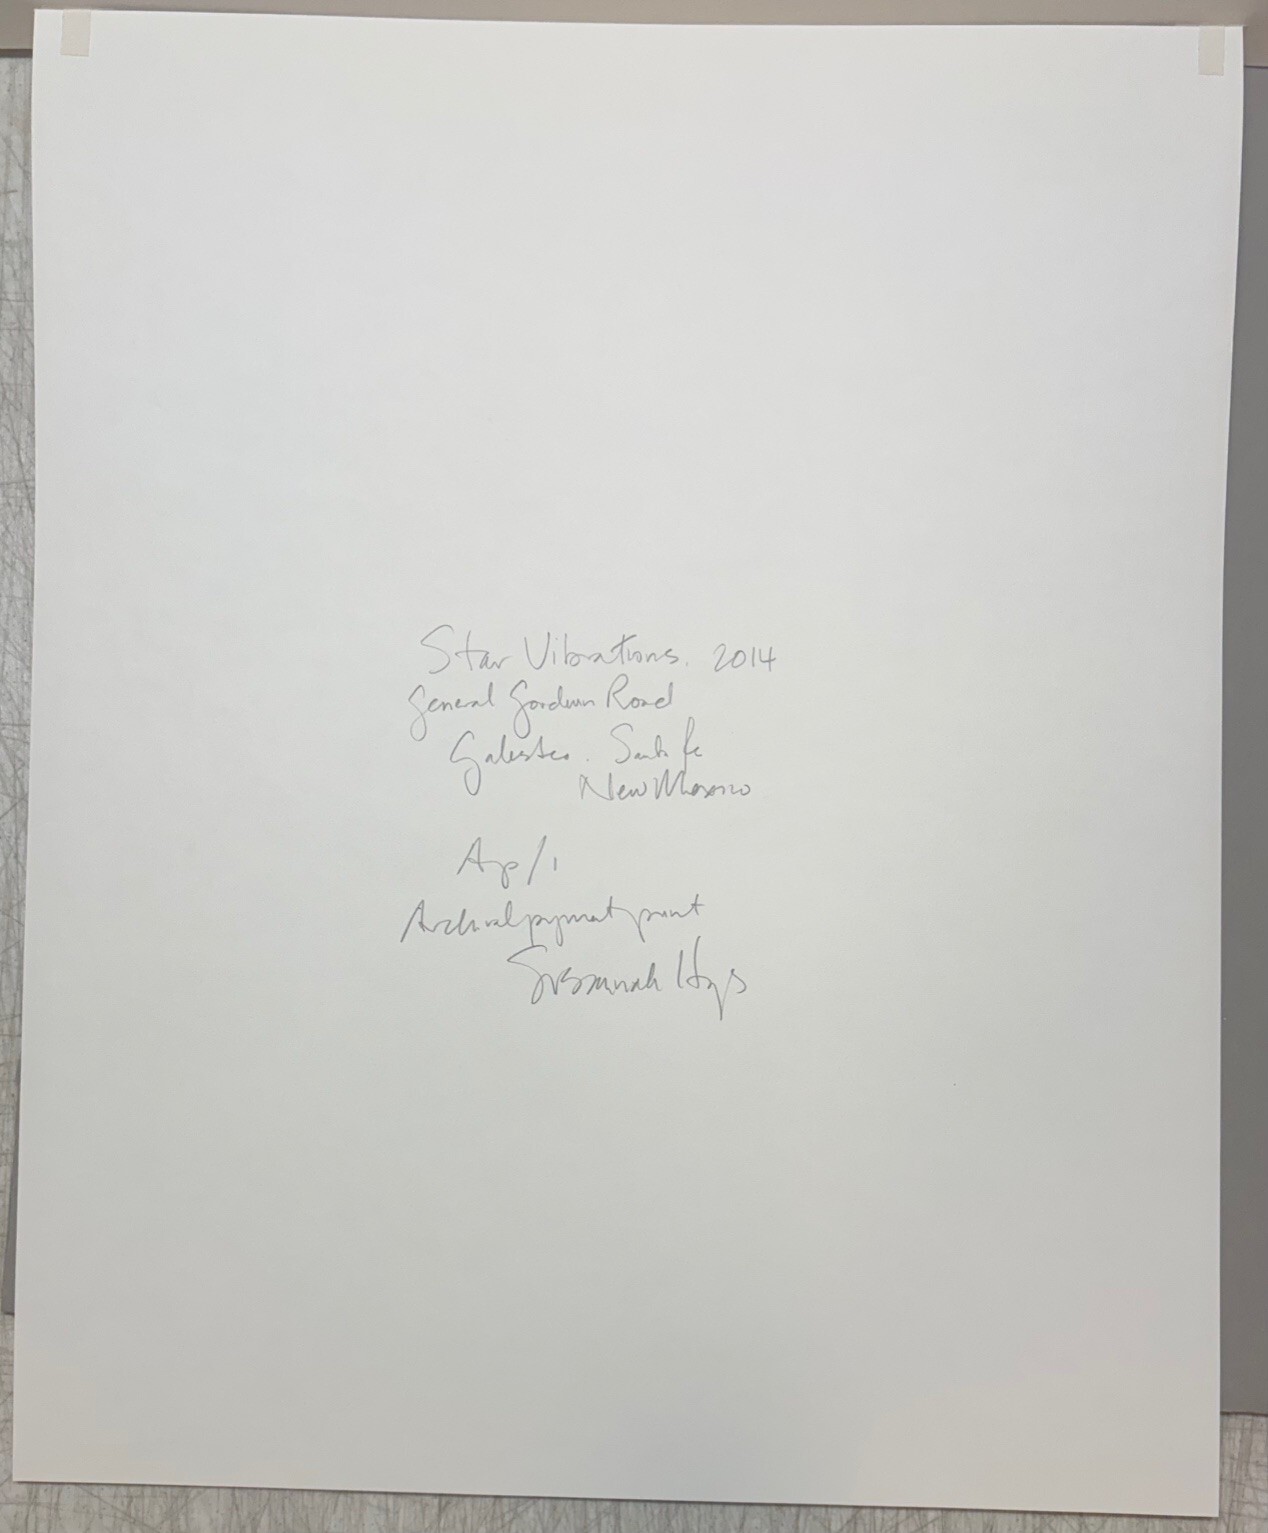 Star Vibrations. 2014
General Goodwin Road
Galesteo. Santa Fe
New Mexico
Ap/1
Archival pigment print
Susannah Hays